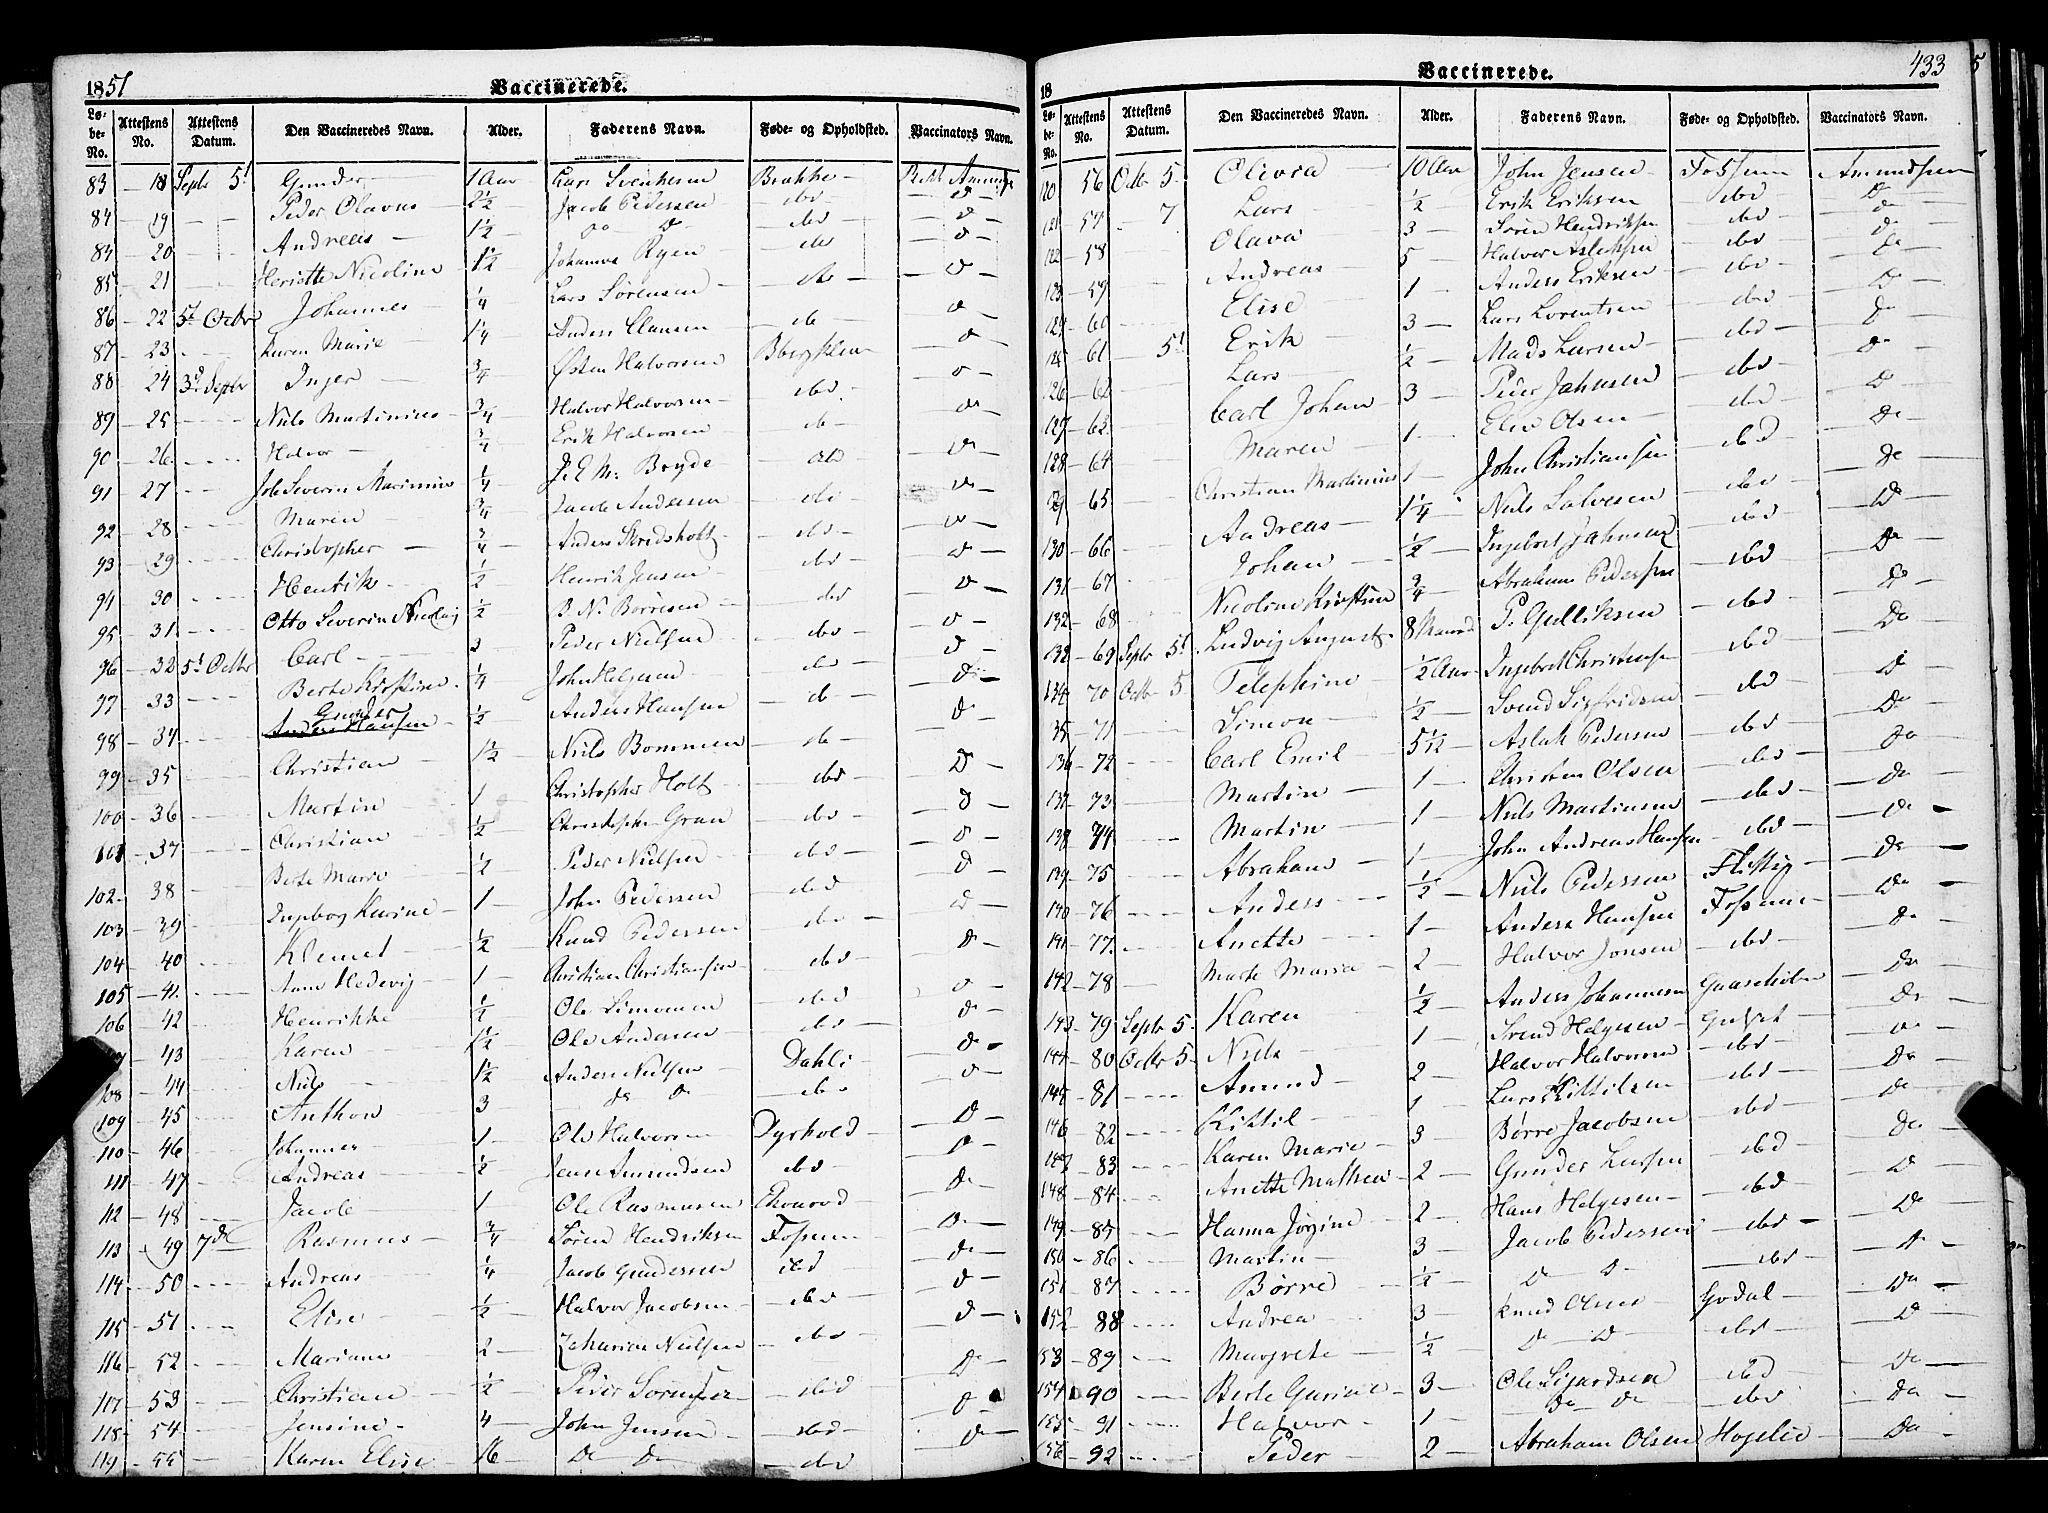 1851 Vaccinerede.
Løbe-No. Attestens No. Attestens Datum. Den Vaccineredes Navn. Alder. Faderens Navn. Føde- og Opholdsted. Vaccinators Navn.
83 18 Septr 5t Gunder 1 Aar Lars Svenkesen Brække
84 19 Peder Olavus 2½ Jacob Pedersen ibd D
84 20 Andreas 1½ Do D ibd D
85 21 Heriette Nicoline 1½ Johannes Ryen ibd D
86 22 5t Octbr Johannes ¼ Lars Sørensen ibd D
87 23 Karen Marie 1¼ Anders Clausen ib D
88 24 3d Septbr Inger ¾ Østen Halvorsen D
89 25 Niels Martinius ¾ Halvor Halvorsen ibd D
90 26 Halvor ¾ Erik Halvorsen ib D
91 27 Job Severin Marinius ¼ J. E. M. Bryde ibd D
92 28 Maren ¾ Jacob Andersen ibd D
93 29 Christopher ¾ Anders ibd D
94 30 Henrik ½ Henrik Jensen ibd D
95 31 Otto Severin Nicolaij ½ B. N. Børresen ibd D
96 32 5t Octbr Carl 3 Peder Nielsen ibd D
97 33 Berte Kirstine ¼ John Helgesen ibd D
98 34 Gunder Anders Hansen ½ Anders Hansen ib D
99 35 Christian 1½ Niels Bommen ib D
100 36 Martin 1 Christopher Holt ibd D
101 37 Christian ½ Christopher Gran ibd D
102 38 Berte Marie ½ Peder Nielsen ibd D
103 39 Ingebog Karine 1 John Pedersen ibd D
104 40 Klemet ½ Knud Pedersen ibd D
105 41 Anne Hedevig 1 Christian Christiansen ibd D
106 42 Henrikke ½ Ole Simonsen ibd D
43 Karen 1½ Ole Andersen ibd D
108 44 Niels 1½ Anders Nielsen Dahli D
109 45 Anthon 3 Do D ibd D
110 46 Johannes 1 Ole Halvorsen Dyrhold D
111 47 Andreas ½ Jens Amundsen ibd D
112 48 Jacob 1 Ole Rasmusen D
113 49 7de Rasmus ¾ Søren Hendriksen Fossum D
114 50 Andreas ¼ Jacob Gundersen ibd D
115 51 Elise ½ Halvor Jacobsen ibd D
116 52 Mariane 2 Zacharias Nielsen ibd D
117 53 Christian ½ Peder Sørensen ibd D
118 54 Jensine 4 John Jensen ibd D
119 55 Karen Elise 16 Do Do ibd D
18 Vaccinerede. 433
Løbe-No. Attestens No. Attestens Datum. Den Vaccineredes Navn. Alder. Faderens Navn. Føde- og Opholdsted. Vaccinators Navn.
120 56 Octbr 5 Olivia 10 Aar John Jensen Fossum Amundsen
121 57 7 Lars ½ Erik Eriksen ibd D
122 58 Olava 3 Søren Hendriksen ibd Do
123 59 Andreas 5 Halvor Aslaksen ibd Do
124 60 Elise 1 Anders Eriksen ibd Do
125 61 5t Erik 3 Lars Lorentsen ibd Do
126 62 Lars ½ Mads Larsen ibd Do
127 63 Carl Johan 3 Peder Jahnsen ibd D
128 64 Maren 1 Elev Olsen ibd Do
129 65 Christian Martinius 1 John Christiansen ibd Do
130 66 Andreas 1¼ Niels Salvesen ibd Do
131 67 Johan ½ Ingebret Jahnsen ibd Do
132 68 Nicoline Kirstine ¾ Abraham Pedersen ibd Do
133 69 Septr 5t Ludvig August 8 Maaned P. Gulliksen ibd Do
134 70 Octbr 5 Telephine ½ Aar Ingebret Christensen ibd Do
135 71 Simon ½ Svend Sigfridsen ibd D
136 72 Carl Emil 5½ Aslak Pedersen ibd Do
137 73 Martin 1 Christen Olsen ibd Do
138 74 Martin 1 Niels Martinsen ibd Do
139 75 Abraham 1 John Andreas Hansen ibd Do
140 76 Anders ½ Niels Pedersen Flittig Do
141 77 Anette 1 Anders Hansen Fossum Do
142 78 Marte Maria 2 Halvor Jonsen ibd Do
143 79 Septr 5 Karen ½ Anders Johannesen Gaaseholm Do
144 80 Octbr 5 Niels 1 Svend Helgesen Do
145 81 Amund 2 Halvor Halvorsen ibd Do
146 82 Kittil 1 Lars Kittilsen ibd Do
147 83 Karen Marie 3 Børre Jacobsen ibd Do
148 84 Anette Mathea 2 Gunder Larsen ibd Do
149 85 Hanna Jørgine 2 Hans Helgesen ibd D
150 86 Martin 3 Jacob Pedersen ibd Do
151 87 Børre ½ D D ibd D
152 88 Andrea 3 Knud Olsen Godal Do
153 89 Margrete ½ D D ibd D
154 90 Berte Gurine 3 Ole Sigurdsen ibd Do
155 91 Halvor 1 Do Do ibd Do
156 92 Peder 2 Abraham Olsen Hogelie Do